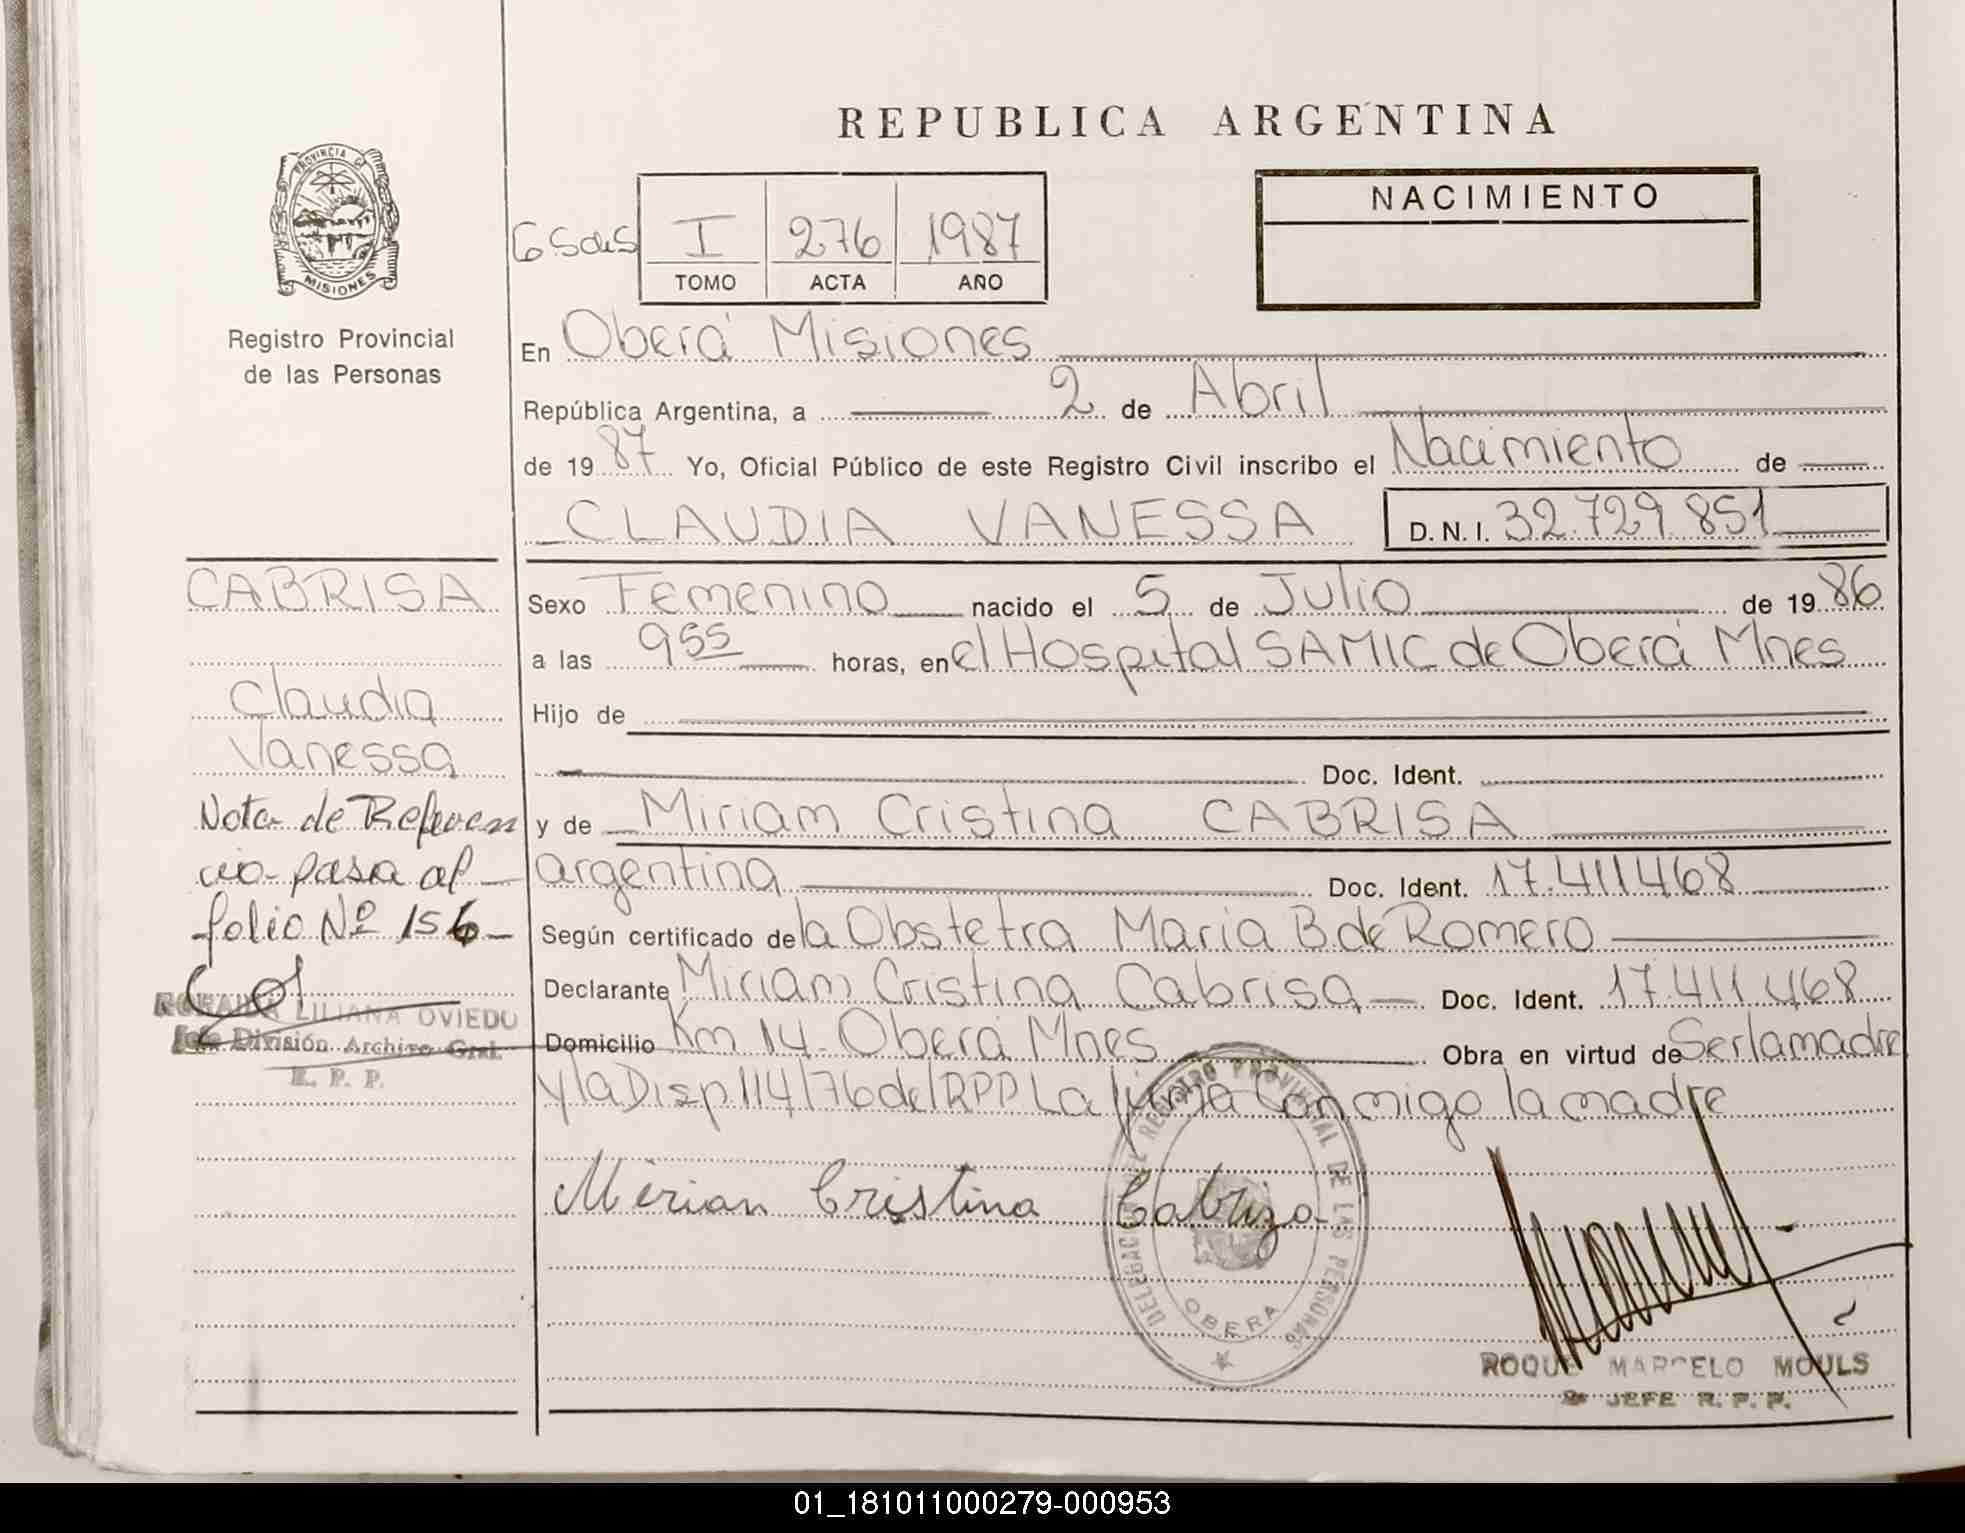 REPUBLICA ARGENTINA
PROVINCIA DE
MISIONES
Registro Provincial
de las Personas
NACIMIENTO
I 276 1987
TOMO ACTA AÑO
En Oberá Misiones
República Argentina, a 2 de Abril
de 1987 Yo, Oficial Público de este Registro Civil inscribo el Nacimiento de
CLAUDIA VANESSA D.N.I. 32.729.851
CABRISA
Claudia
Vanessa
Nota de Referen
cia pasa al
folio Nº 156
LILIANA OVIEDO
Jefe División Archivo Gral.
R. P. P.
Sexo Femenino nacido el 5 de Julio de 1986
a las 9 55 horas, en el Hospital SAMIC de Oberá Mnes
Hijo de
Doc. Ident.
y de Miriam Cristina CABRISA
argentina Doc. Ident. 17.411468
Según certificado de la Obstetra Maria B de Romero
Declarante Miriam Cristina Cabrisa Doc. Ident. 17.411.468
Domicilio Km 14 Oberá Mnes Obra en virtud de Ser la madre
y la Disp 114/76 del RPP La firma Conmigo la madre
Mirian Cristina Cabriza
DELEGACION DEL REGISTRO PROVINCIAL DE LAS PERSONAS
OBERA
ROQUE MARCELO MOULS
JEFE R. P. P.
01_181011000279-000953